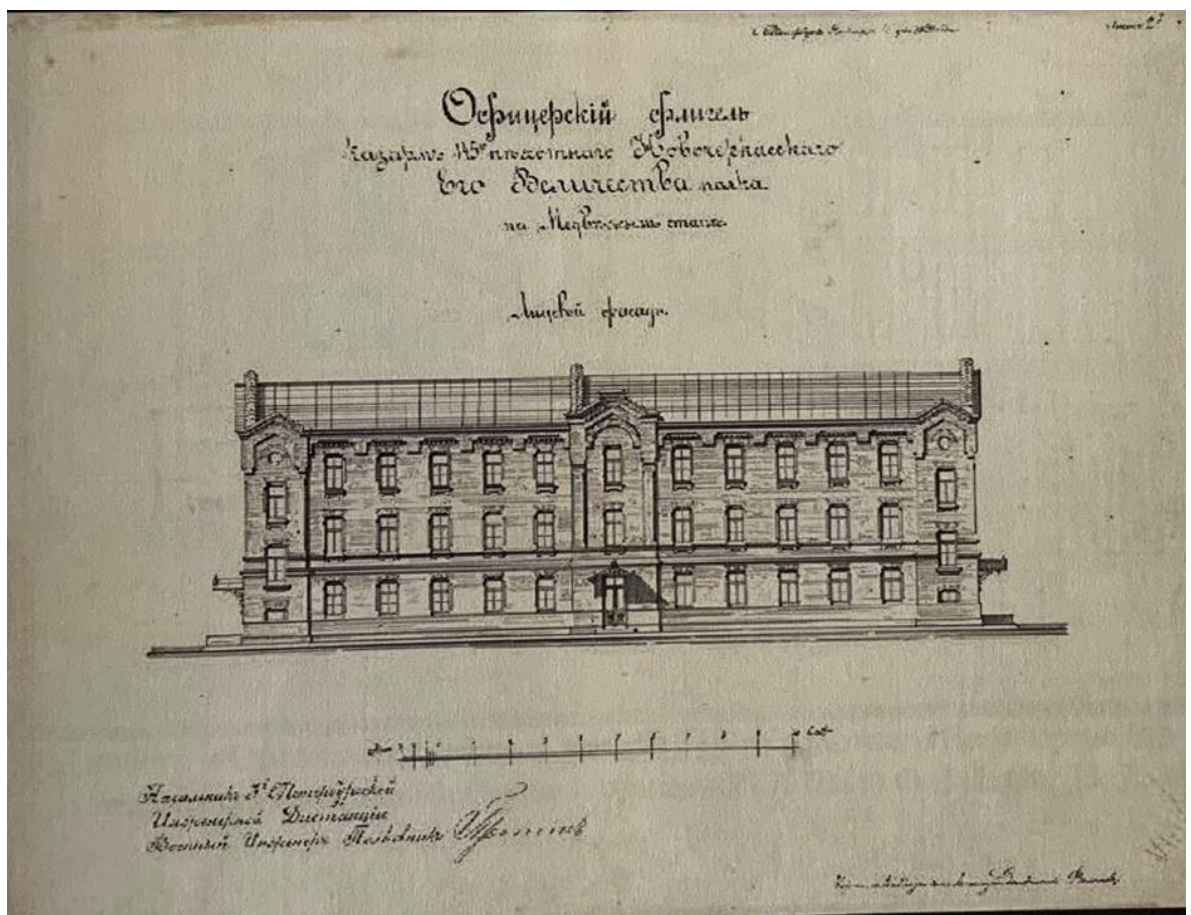 Листъ 2й
Офицерскій флигель
казармъ 145го пѣхотнаго Новочеркасскаго
Его Величества полка
на Медвѣжьемъ станѣ
Лицевой фасадъ.
10 Саж
Начальникъ 3й СПетербургской
Инженерной Дистанціи
Военный Инженеръ Полковникъ